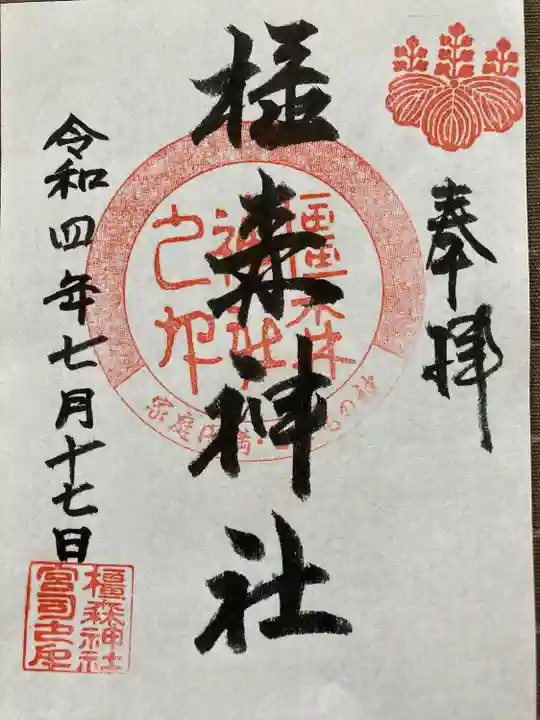 奉拝
橿森神社
橿森神社之印
家庭円満・
の神
令和四年七月十七日
橿森神社
宮司之印